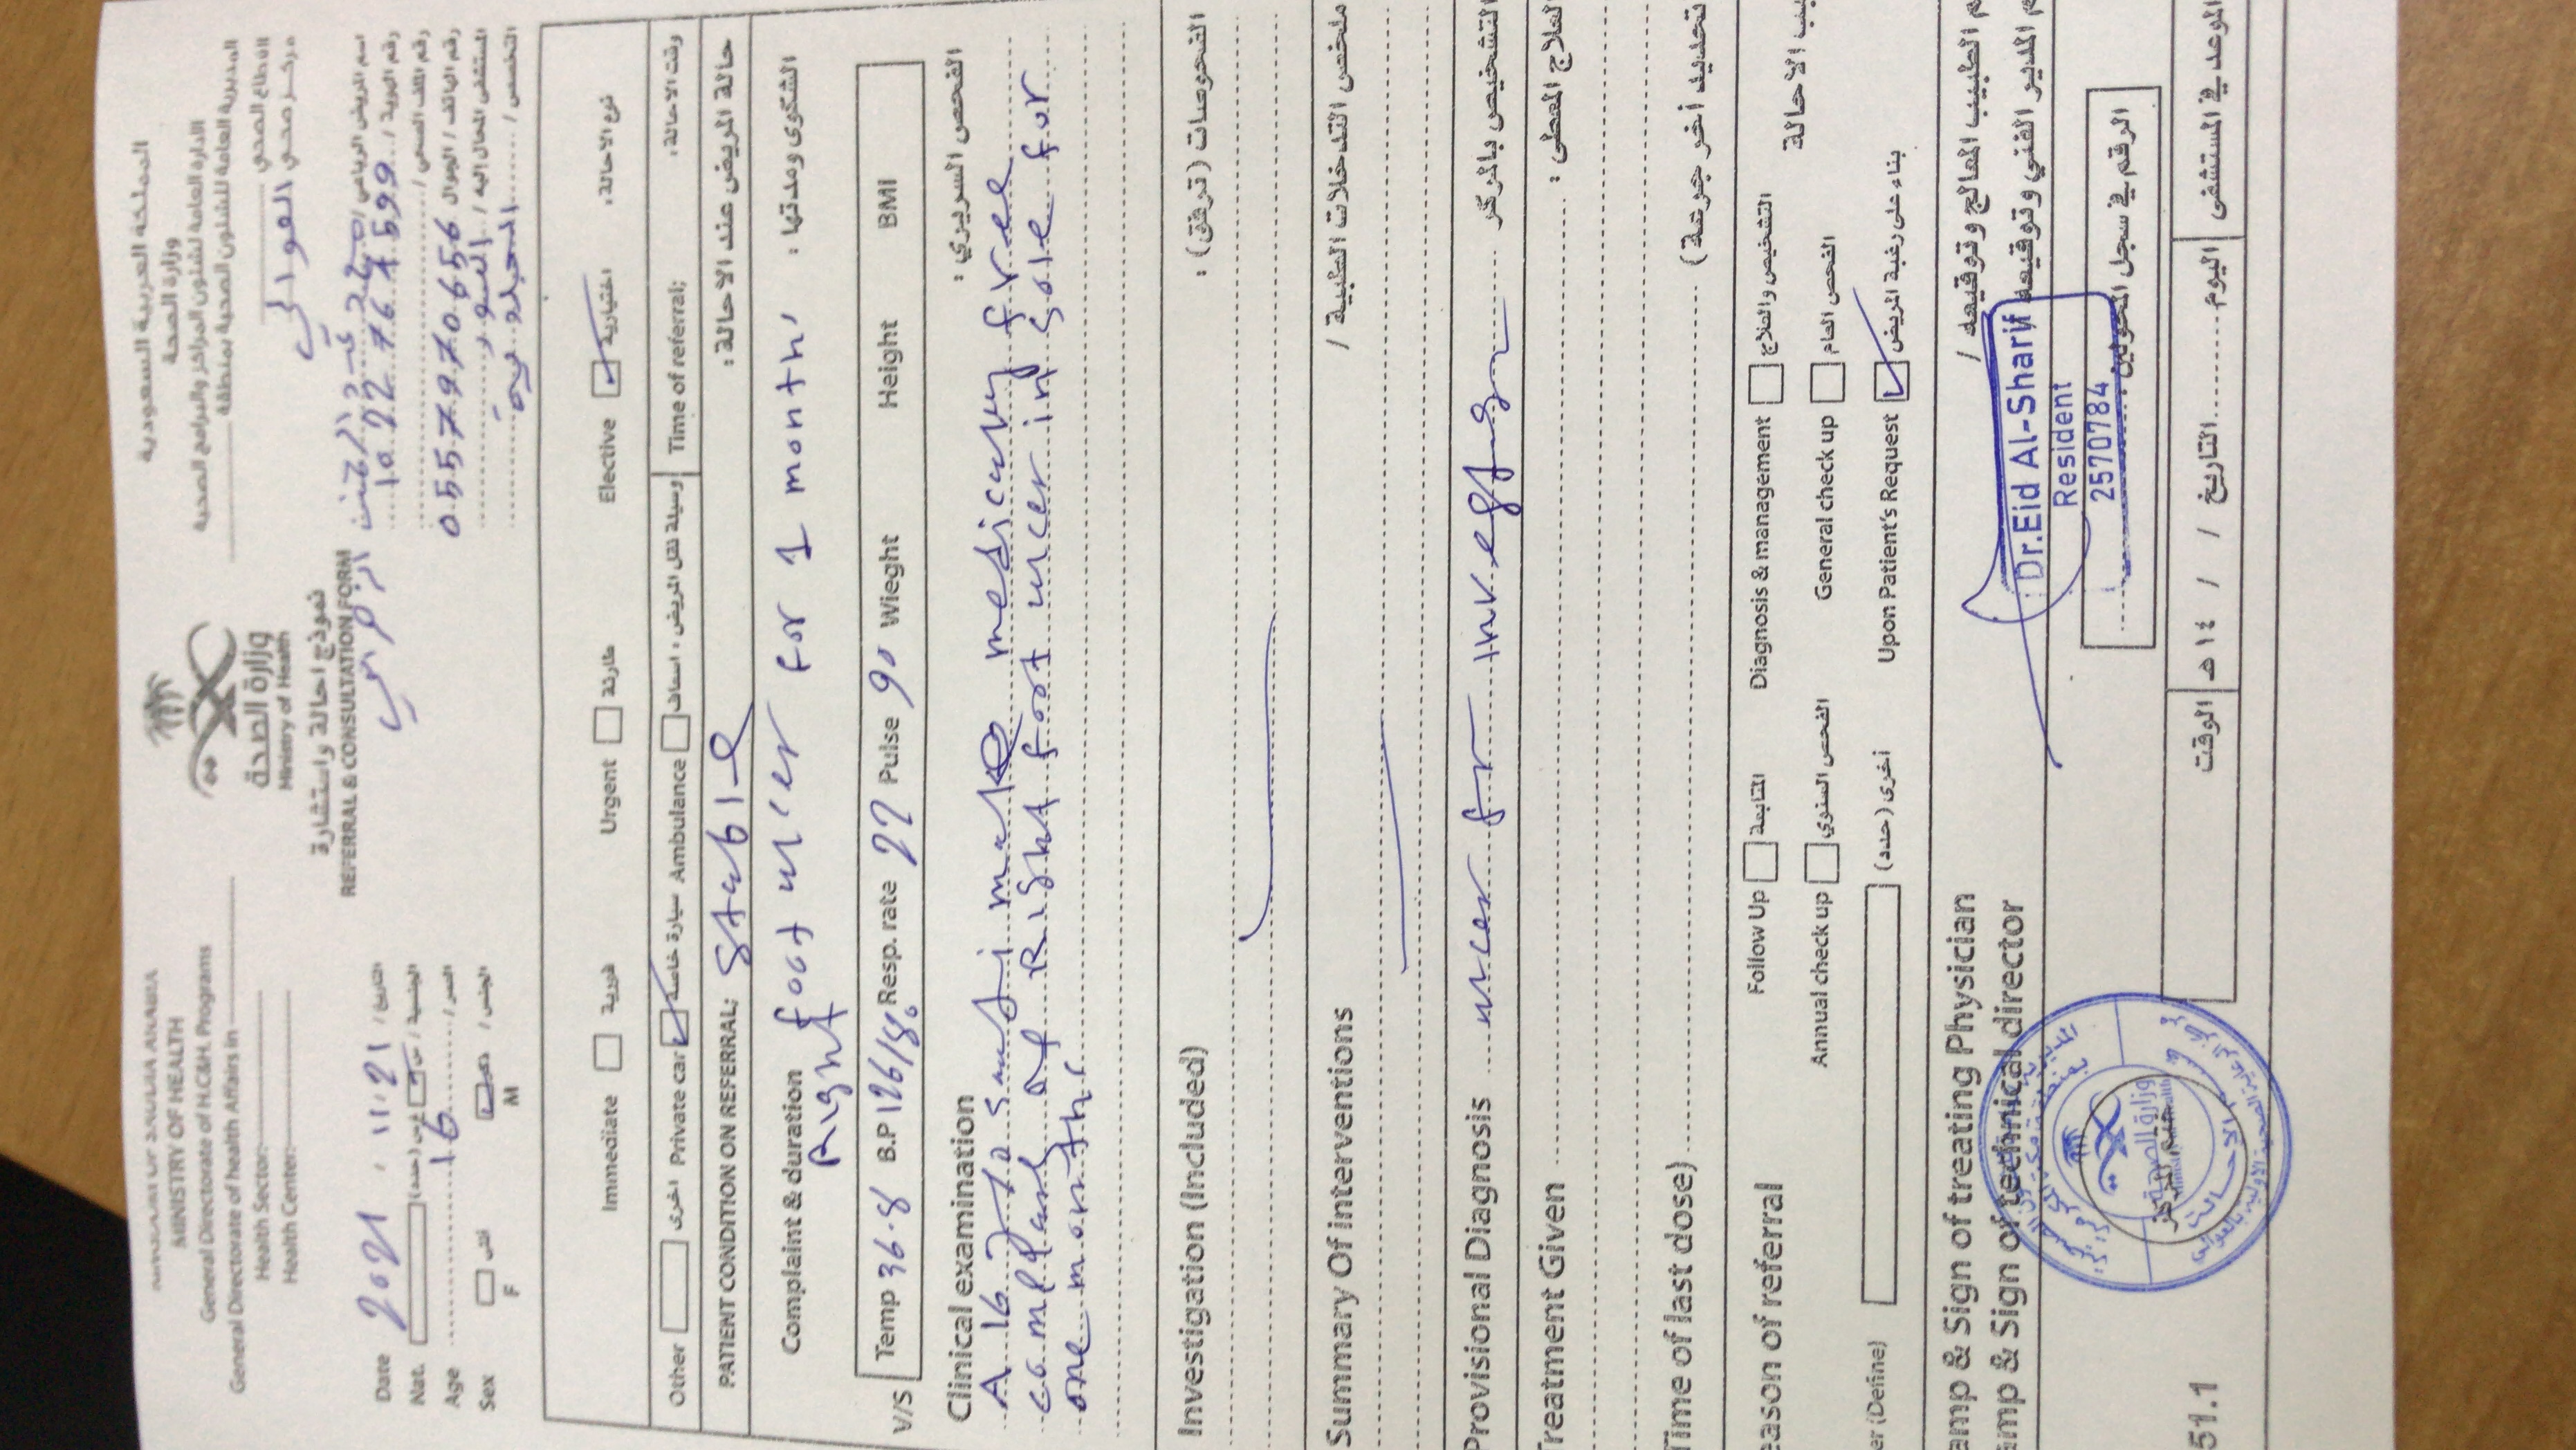 KINGDOM OF SAUDIA ARABIA
MINISTRY OF HEALTH
General Directorate of H.C&H. Programs
General Directorate of health Affairs in
Health Sector:
Health Center:
وزارة الصحة
Ministry of Health
نموذج احالة واستشارة
REFERRAL & CONSULTATION FORM
المملكة العربية السعودية
وزارة الصحة
الادارة العامة لشئون المراكز والبرامج الصحية
المديرية العامة للشئون الصحية بمنطقة
القطاع الصحي
مركز صحي العوالي
Date 2021 . 11.21 التاريخ /
Nat. الجنسية / س غ س (حدد)
Age 16 العمر /
Sex الجنس / ذكر أنثى
F M
اسم المريض الرباعي /
رقم الهوية / 1022767599
رقم الملف الصحي /
رقم الهاتف / الجوال 0557970656
المستشفى المحال إليه / النور
التخصص /
Immediate فورية Urgent طارئة Elective اختيارية نوع الاحالة :
Other اخرى Private car سيارة خاصة Ambulance اسعاف وسيلة نقل المريض : Time of referral; وقت الاحالة :
PATIENT CONDITION ON REFERRAL; stable حالة المريض عند الاحالة :
Complaint & duration foot ulcer for 1 month الشكوى ومدتها :
Right
V/S Temp 36.8 B.P 126/80 Resp. rate 22 Pulse 90 Wieght Height BMI
Clinical examination الفحص السريري :
A 16 y/o saudi male medically free
of Right foot ulcer in sole for
one month
Investigation (Included) الفحوصات (ترفق) :
Summary Of interventions ملخص التدخلات الطبية /
Provisional Diagnosis ulcer for التشخيص بالمركز
Treatment Given العلاج المعطى :
Time of last dose) تحديد أخر جرعة)
eason of referral Follow Up المتابعة Diagnosis & management التشخيص والعلاج بب الاحالة
Annual check up الفحص السنوي General check up الفحص العام
er (Define) أخرى (حدد) Upon Patient's Request بناء على رغبة المريض
amp & Sign of treating Physician م الطبيب المعالج وتوقيعه /
amp & Sign of technical director م المدير الفني وتوقيعه
Dr.Eid Al-Sharif
Resident
2570784
الرقم في سجل المحولين :
وزارة الصحة
Ministry of Health
ختم المركز
قسم الإحالة
مركز الرعاية الصحية الاولية بالعوالي
51.1 الموعد في المستشفى اليوم التاريخ / / ١٤ هـ الوقت